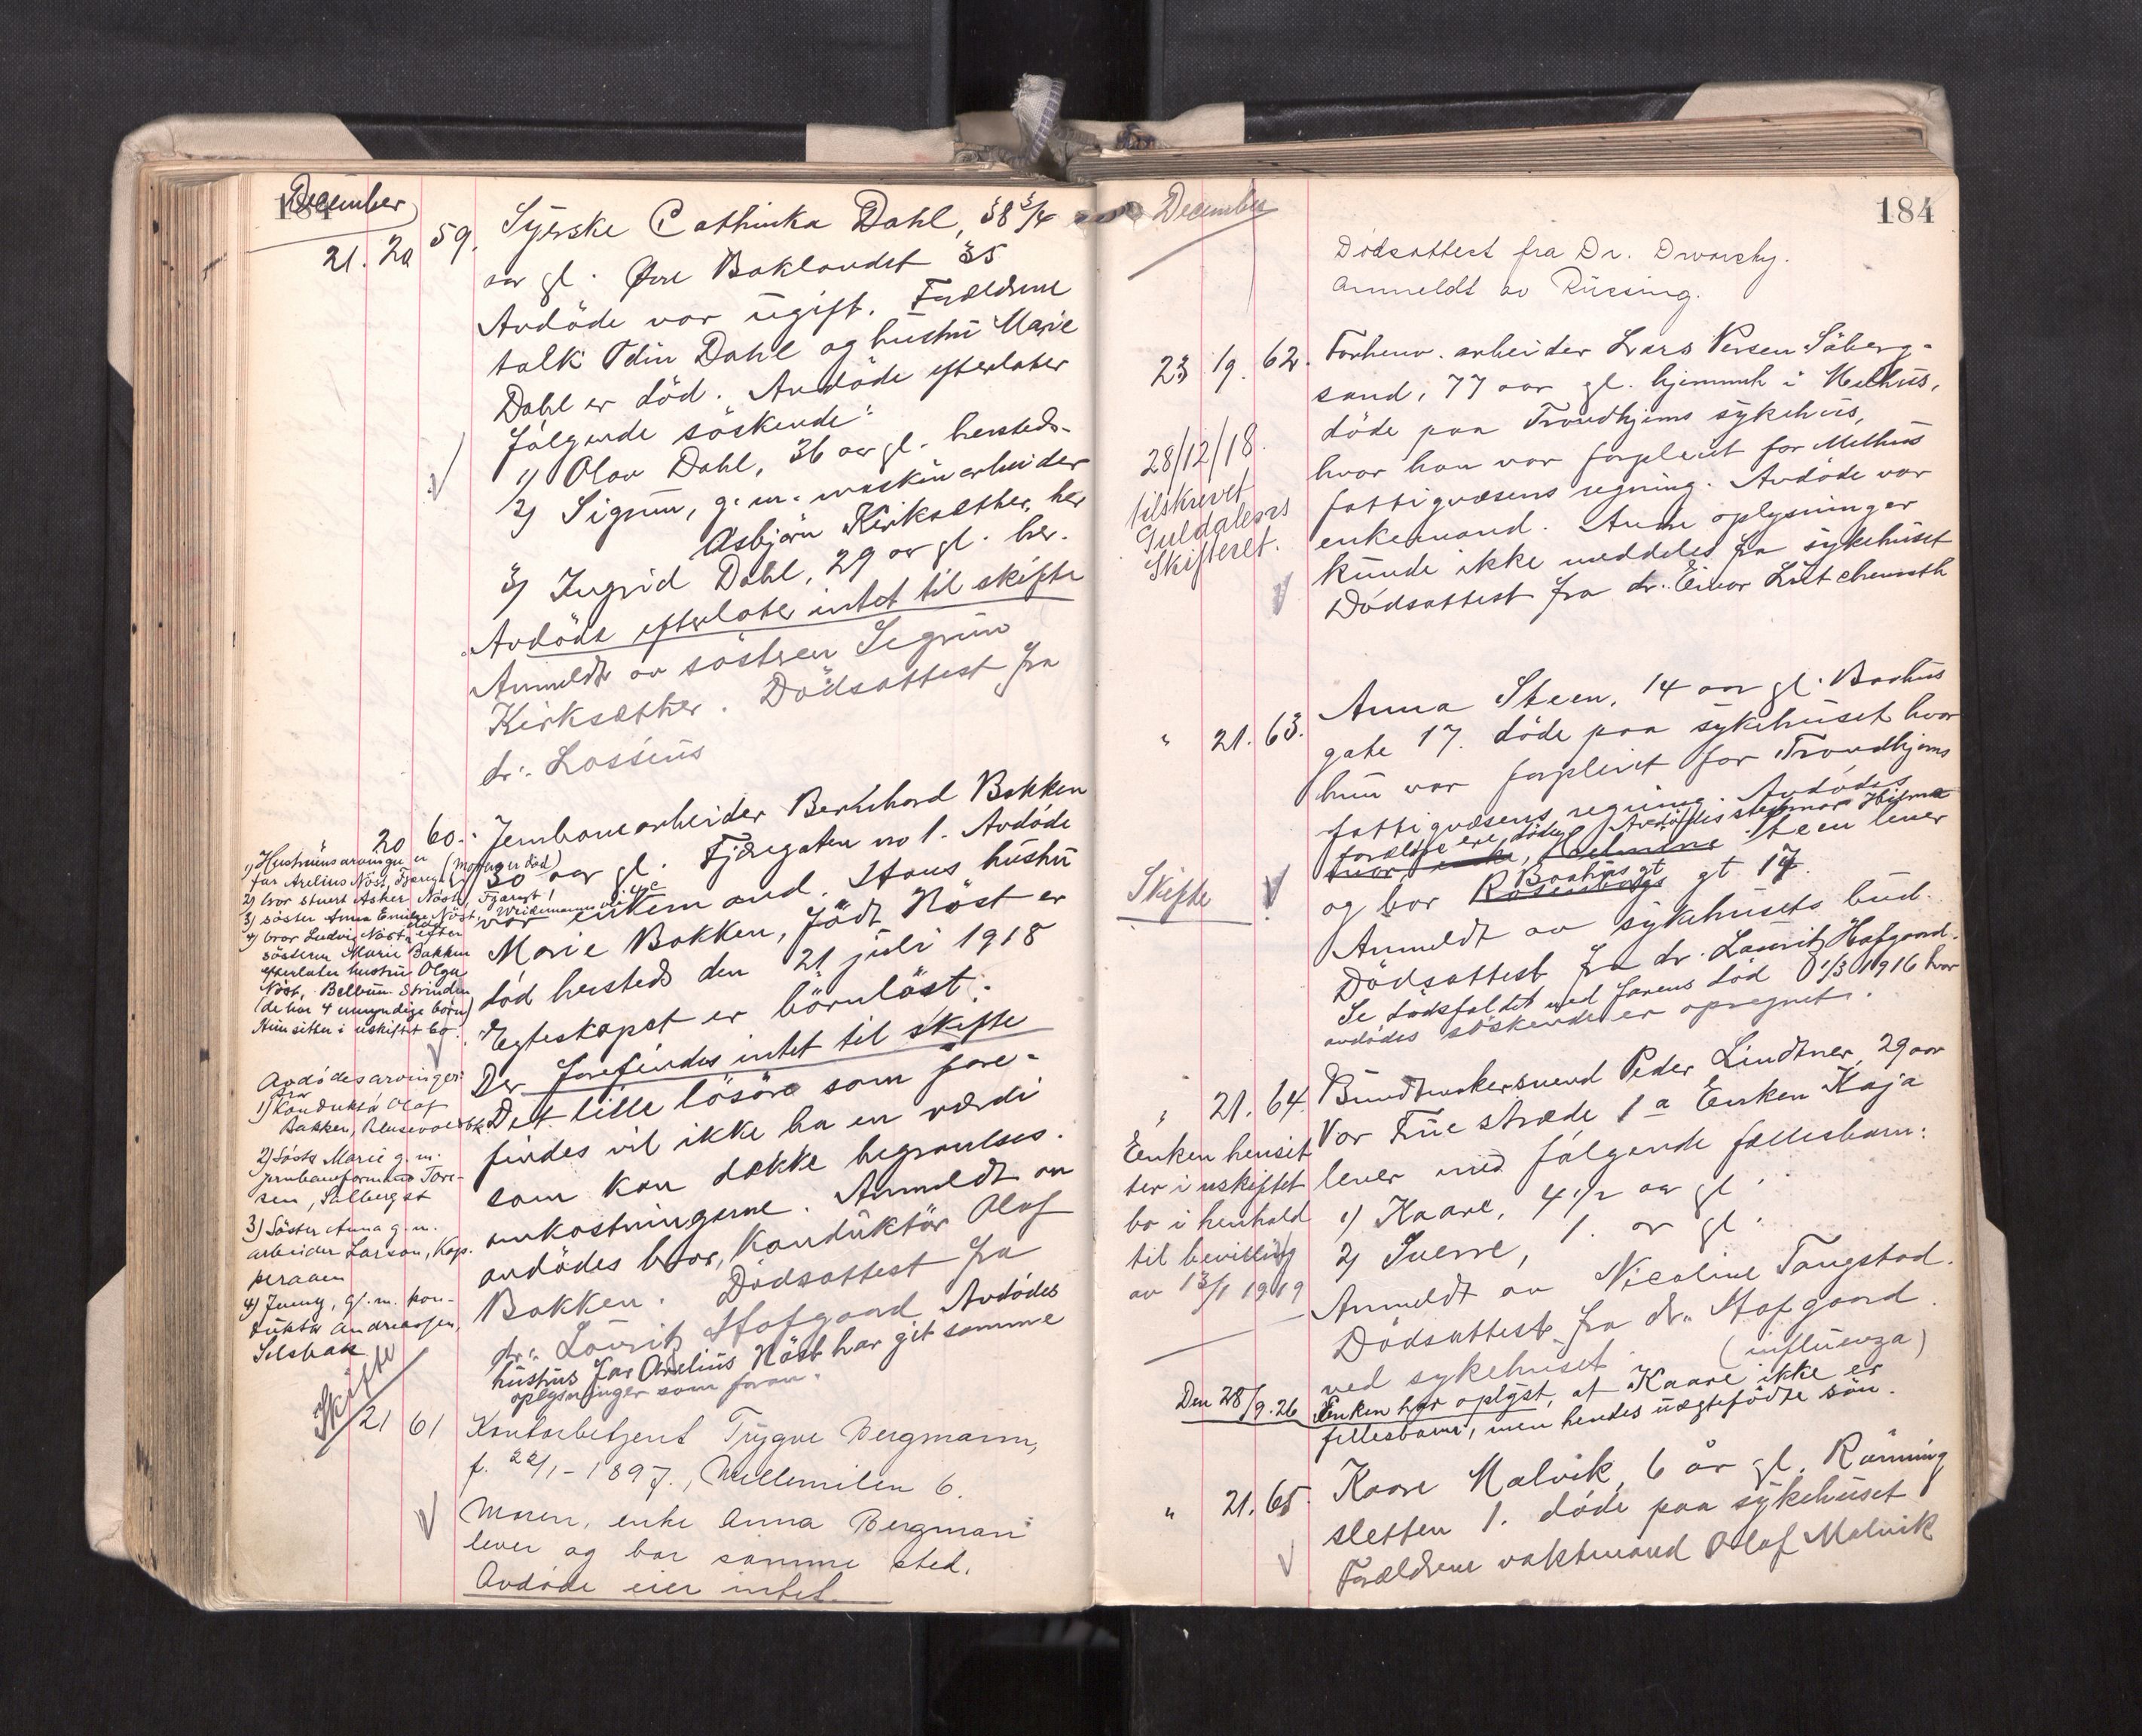 December
184
21. 20 59. Syerske Cathinka Dahl, 38 3/4
aar gl. Øvre Baklandet 35
Avdöde var ugift. Forældrene
tolk Odin Dahl og hustru Marie
Dahl er död. Avdöde efterlater
følgende söskende:
1) Olav Dahl, 36 aar gl. hersteds.
2) Sigrun, g. m. maskinarbeider
Asbjörn Kirksæther, her
3) Ingrid Dahl, 29 aar gl. her.
Avdöde efterlater intet til skifte
Anmeldt av söstren Sigrun
Kirksæther. Dödsattest fra
dr. Lossius
" 20 60. Jernbanearbeider Bernhard Bakken
30 aar gl. Fjæregaten no 1. Avdöde
var enkemand. Hans hustru
Marie Bakken, född Nöst er
död hersteds den 21 juli 1918
Egteskapet er börnlöst.
Der forefindes intet til skifte
Det lille lösöre som fore-
findes vil ikke ha en værdi
som kan dække begravelses-
omkostningerne. Anmeldt av
avdödes bror, konduktör Olaf
Bakken. Dödsattest fra
dr. Lauritz Hofgaard Avdödes
hustrus far Arelius Nöst har git samme
oplysninger som foran.
1) Hustruens arvinger er
far Arelius Nöst, Fjæregt 1 (Moren er död)
2) bror stuert Asker Nöst, Fjæregt 1
3) söster Anna Emilie Nöst, Weidemanns vei
4) bror Ludvig Nöst, död efter
sösteren Marie Bakken
efterlater hustru Olga
Nöst, Belbuen Strinden
(de har 4 umyndige börn)
Hun sitter i uskiftet bo.
Avdödes arvinger:
1) bror Konduktör Olaf
Bakken,
2) Söster Marie g. m.
jernbaneformand Tore-
sen, Solbergst
3) Söster Anna g. m.
arbeider Larson, Kop-
peraaen
4) Jenny, g. m. kon-
duktör Andreassen,
Selsbak
Skifte
21 61 Kontorbetjent Trygve Bergmann,
f. 22/1-1897, Mellemilen 6.
Moren, enke Anna Bergman
lever og bor samme sted.
Avdöde eier intet.
December
184
Dödsattest fra Dr. Dworsky.
Anmeldt av Rüssing.
23 19. 62. Forhenv. arbeider Lars Persen Söberg-
sand, 77 aar gl. hjemmeh i Melhus,
döde paa Trondhjems sykehus,
hvor han var forpleiet for Melhus
fattigvæsens regning. Avdöde var
enkemand. Andre oplysninger
kunde ikke meddeles fra sykehuset
Dödsattest fra dr. Einar Lütcherath
28/12/18.
tilskrevet
Guldalens
Skifteret.
" 21. 63. Anna Steen, 14 aar gl. Baahus
gate 17. döde paa sykehuset hvor
hun var forpleiet for Trondhjems
fattigvæsens regning. Avdödes
forældre ere döde, Avdödes stedmor Hilma
Steen lever
og bor Baahus gt gt 17.
Anmeldt av sykehusets bud.
Dödsattest fra dr. Lauritz Hofgaard.
Se dödsfaldet ved farens död 1/3 1916 hvor
avdödes söskende er opregnet.
Skifte
" 21. 64. Bundtmakersvend Peder Lindtner, 29 aar
Vor Frue stræde 1 a Enken Kaja
lever med følgende fællesbarn:
1) Kaare, 4 1/2 aar gl.
2) Sverre, 1 aar gl.
Anmeldt av Nicoline Tangstad.
Dödsattest fra dr. Hofgaard
ved sykehuset. (influenza)
Enken hensit-
ter i uskiftet
bo i henhold
til bevilling
av 13/1 1919
Den 28/9.26 Enken har oplyst, at Kaare ikke er
fellesbarn, men hendes uægtefödte sön.
" 21. 65. Kaare Malvik, 6 år gl. Rönning
sletten 1. döde paa sykehuset
Forældrene vaktmand Olaf Malvik